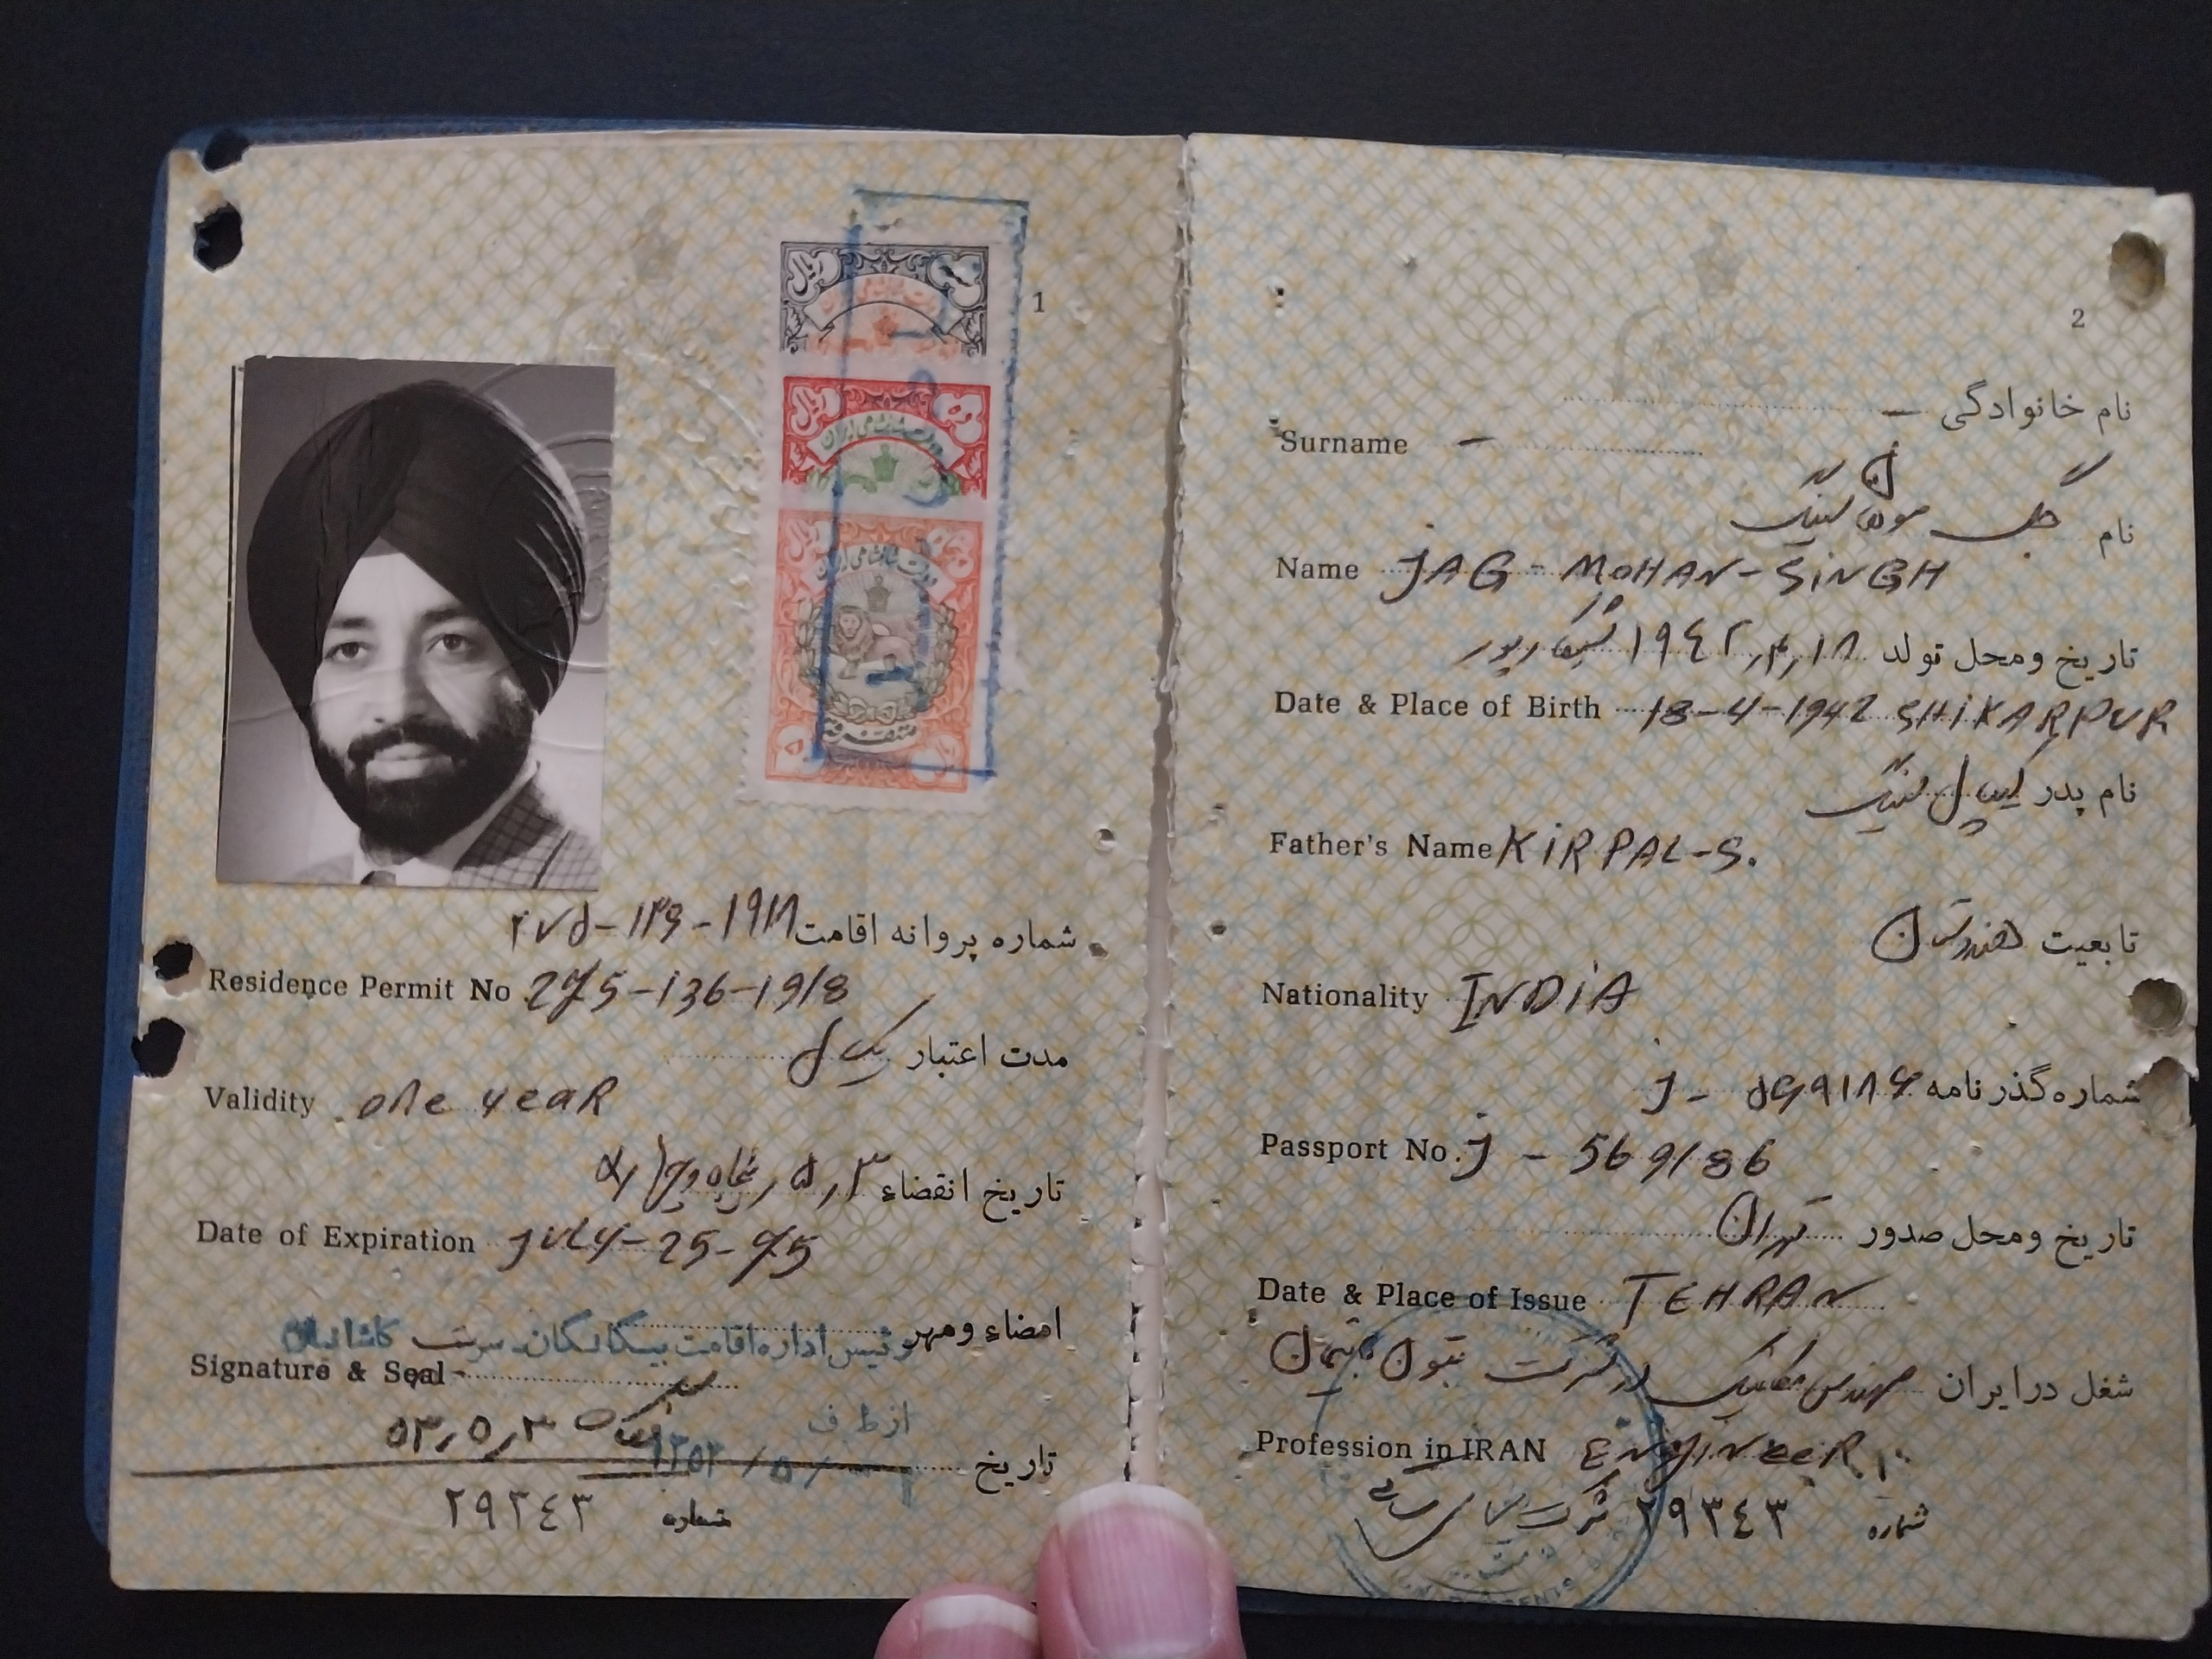 1
شماره پروانه اقامت ۲۷۵-۱۳۶-۱۹۱۸
Residence Permit No 275-136-1918
مدت اعتبار یکسال
Validity one year
تاریخ انقضاء ۳,۵,
Date of Expiration july-25-75
امضاء و مهر
رئیس اداره اقامت بیگانگان
Signature & Seal
از طرف
۵۳,۵,۳
تاریخ
شماره ۲۹۳۴۳
2
نام خانوادگی —
Surname —
نام جگ موهان سینگ
Name JAG-MOHAN-SINGH
تاریخ ومحل تولد ۱۸,۴,۱۹٤۲ شیکارپور
Date & Place of Birth 18-4-1942 SHIKARPUR
نام پدر کیرپال سینگ
Father's Name KIRPAL-S.
تابعیت هندوستان
Nationality INDIA
شماره گذرنامه J - ۵۶۹۱۸۶
Passport No. J - 569186
تاریخ ومحل صدور تهران
Date & Place of Issue TEHRAN
شغل در ایران مهندس مکانیک در شرکت
Profession in IRAN ENGINEER
شماره ۲۹۳٤۳ شرکت